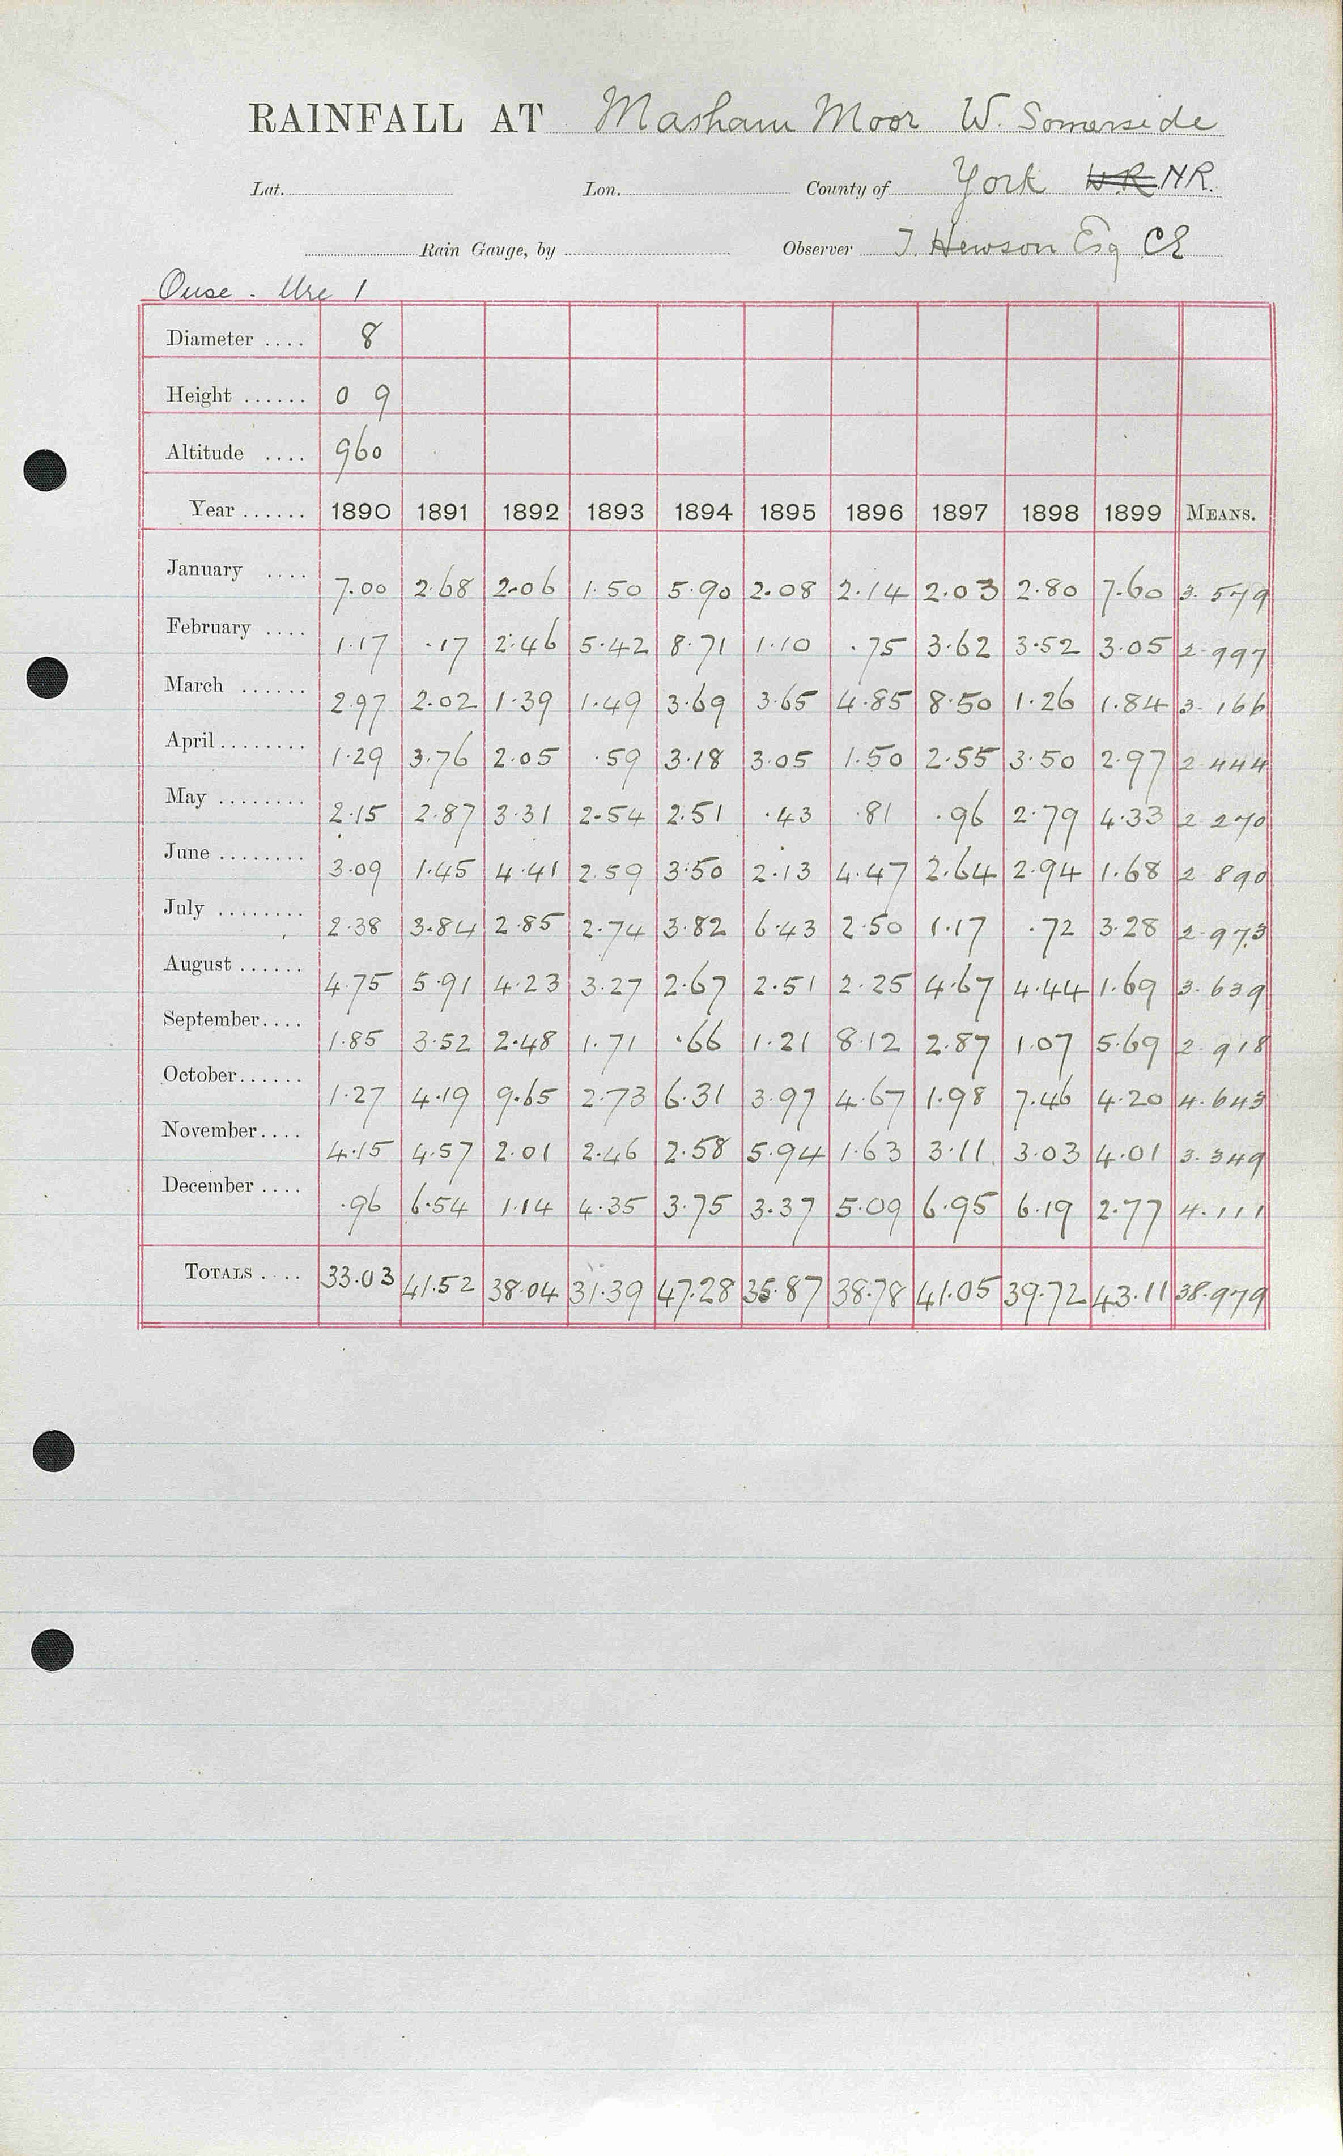 RAINFALL AT Masham Moor W. Somerside
Lat. Lon. County of York W.R. N.R.
Rain Gauge, by Observer T. Hewson Esq CE
Ouse. Ure 1
Diameter .... 8
Height ...... 0 9
Altitude .... 960
Year ...... 1890 1891 1892 1893 1894 1895 1896 1897 1898 1899 MEANS.
January .... 7.00 2.68 2.06 1.50 5.90 2.08 2.14 2.03 2.80 7.60 3.579
February .... 1.17 .17 2.46 5.42 8.71 1.10 .75 3.62 3.52 3.05 2.997
March ...... 2.97 2.02 1.39 1.49 3.69 3.65 4.85 8.50 1.26 1.84 3.166
April ........ 1.29 3.76 2.05 .59 3.18 3.05 1.50 2.55 3.50 2.97 2.444
May ........ 2.15 2.87 3.31 2.54 2.51 .43 .81 .96 2.79 4.33 2.270
June ........ 3.09 1.45 4.41 2.59 3.50 2.13 4.47 2.64 2.94 1.68 2.890
July ........ 2.38 3.84 2.85 2.74 3.82 6.43 2.50 1.17 .72 3.28 2.973
August ...... 4.75 5.91 4.23 3.27 2.67 2.51 2.25 4.67 4.44 1.69 3.639
September .... 1.85 3.52 2.48 1.71 .66 1.21 8.12 2.87 1.07 5.69 2.918
October ...... 1.27 4.19 9.65 2.73 6.31 3.97 4.67 1.98 7.46 4.20 4.643
November .... 4.15 4.57 2.01 2.46 2.58 5.94 1.63 3.11 3.03 4.01 3.349
December .... .96 6.54 1.14 4.35 3.75 3.37 5.09 6.95 6.19 2.77 4.111
TOTALS .... 33.03 41.52 38.04 31.39 47.28 35.87 38.78 41.05 39.72 43.11 38.979